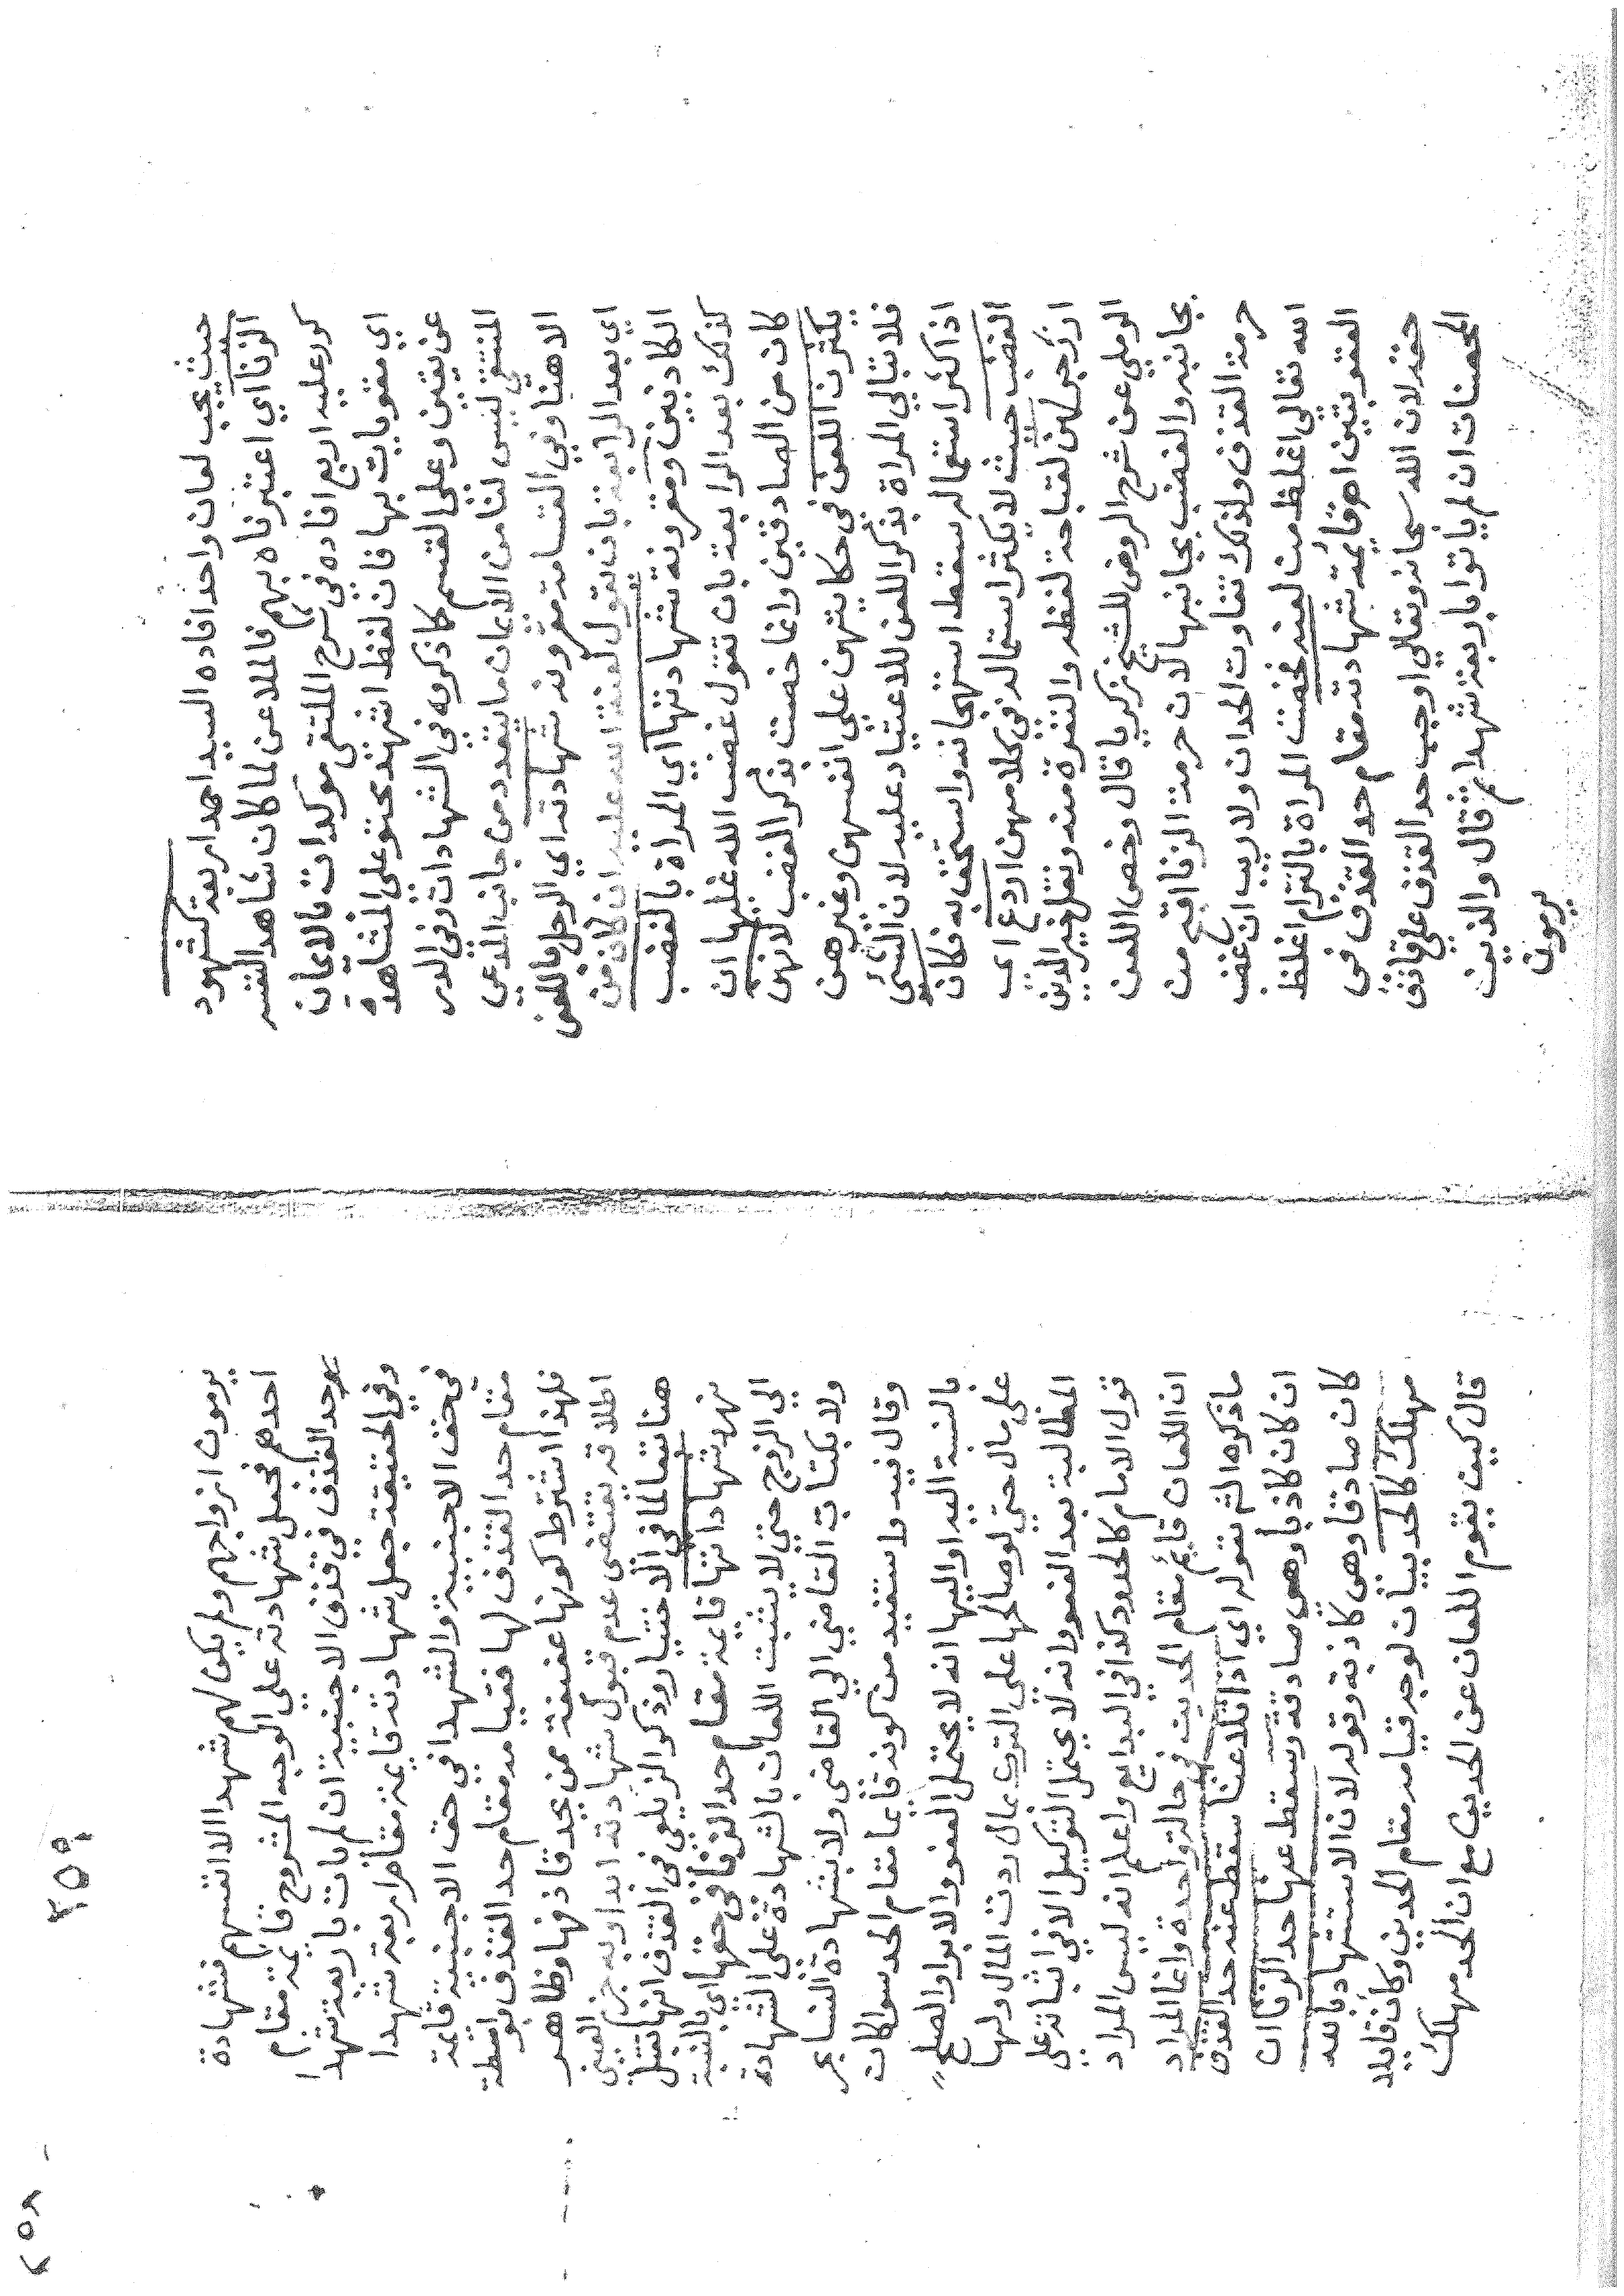 حيث يجب لعان واحد افاده السيد احمد اربعة كشهود
الزنا اي اعتبرناه بهم فالملاعن لما كان شاهد النفسه
كرر عليه اربع افاده في شرح الملتقى موكدات بالايمان
اي مقويات بها فان لفظ اشهد محتو على المشاهدة
عن يقين وعلى القسم كما ذكروه في الشهادات وفي الدر
المنتقى ليس لنا من الايمان ما يتعدد من جانب المدعي
الا هنا وفي القسامة مقرونه شهادته اي الرجل باللعن
اي بعد الرابعة بان يقول لعنة الله عليه ان كان من
الكاذبين ومقرونة شهادتها اي المراة بالغضب
كذلك بعد الرابعة بان تقول غضب الله عليها ان
كان من الصادقين وانما خصت بذكر الغضب لانهن
يكثرن اللعن في حكايتهن على انفسهن وغيرهن
فلا تبالي المراة بذكر اللعن للاعتياد عليه لان الشئ
اذا كثر استعماله سقط استهجانه واستخف به فكان
الغضب حيث لا يكثر استعماله في كلامهن اردع اي
ازجر لهن لقباحة لفظه والنفرة منه ونقل خير الدين
الرملي عن شرح الروض للشيخ زكريا قال وخص اللعن
بجانبه والغضب بجانبها لان حرمة الزنا اقبح من
حرمة القذف ولذلك تفاوت الحدان ولا ريب ان غضب
الله تعالى اغلظ من لعنه فخصت المراة بالتزام اغلظ
العقوبتين اه قائمة شهادته مقام حد القذف في
حقه لان الله سبحانه وتعالى اوجب حد القذف على قاذف
المحصنات ان لم ياتوا باربعة شهدا ثم قال والذين
يرمون
٢٥٩
٢٥٨
يرمون ازواجهم ولم يكن لهم شهدا الا انفسهم فشهادة
احدهم فجعل شهادته على الوجه المشروح قائمة مقام
حد القذف في قذف الاجنبية ان لم يات باربعة شهدا
وفي الحقيقة جعل شهادته قايمة مقام اربعة شهدا
في حق الاجنبية والشهدا في حق الاجنبية قائمة
مقام حد القذف لها فقيامه مقام حد القذف بواسطة
فلهذا اشترط كونها عفيفة ممن يحد قاذفها وظاهر
اطلاقه يقتضي عدم قبول شهادته ابدا وبه جزم العيني
هنا تبعا لما في الاختيار وذكر الزيلعي في القذف انها تقبل
نهر وشهاداتها قايمة مقام حد الزنا في حقها اي بالنسبة
الى الزوج حتى لا يثبت اللعان بالشهادة على الشهادة
ولا بكتاب القاضي الى القاضي ولا بشهادة النسا بحر
وقال فيه واستفيد من كونه قائما مقام الحد سوا كان
بالنسبة اليه او اليها انه لا يحتمل العفو والابرا والصلح
على مال حتى لو صالحها على الترك بمال ردت المال ولها
المطالبة بعد العفو وانه لا يحتمل التوكيل الا في اثباته على
قول الامام كالحدود كذا في البدايع واعلم انه ليس المراد
ان اللعان قائم مقام الحدين في حالة واحدة وانما المراد
ما ذكره الش بقوله اي اذا تلاعنا سقط عنه حد القذف
ان كان كاذبا وهي صادقة وسقط عنها حد الزنا ان
كان صادقا وهي كاذبة وقوله لان الاستشهاد بالله
مهلك كالحد بيان لوجه قيامه مقام الحدين وكأن قايلا
قال كيف يقوم اللعان عن الحدين مع ان الحد مهلك